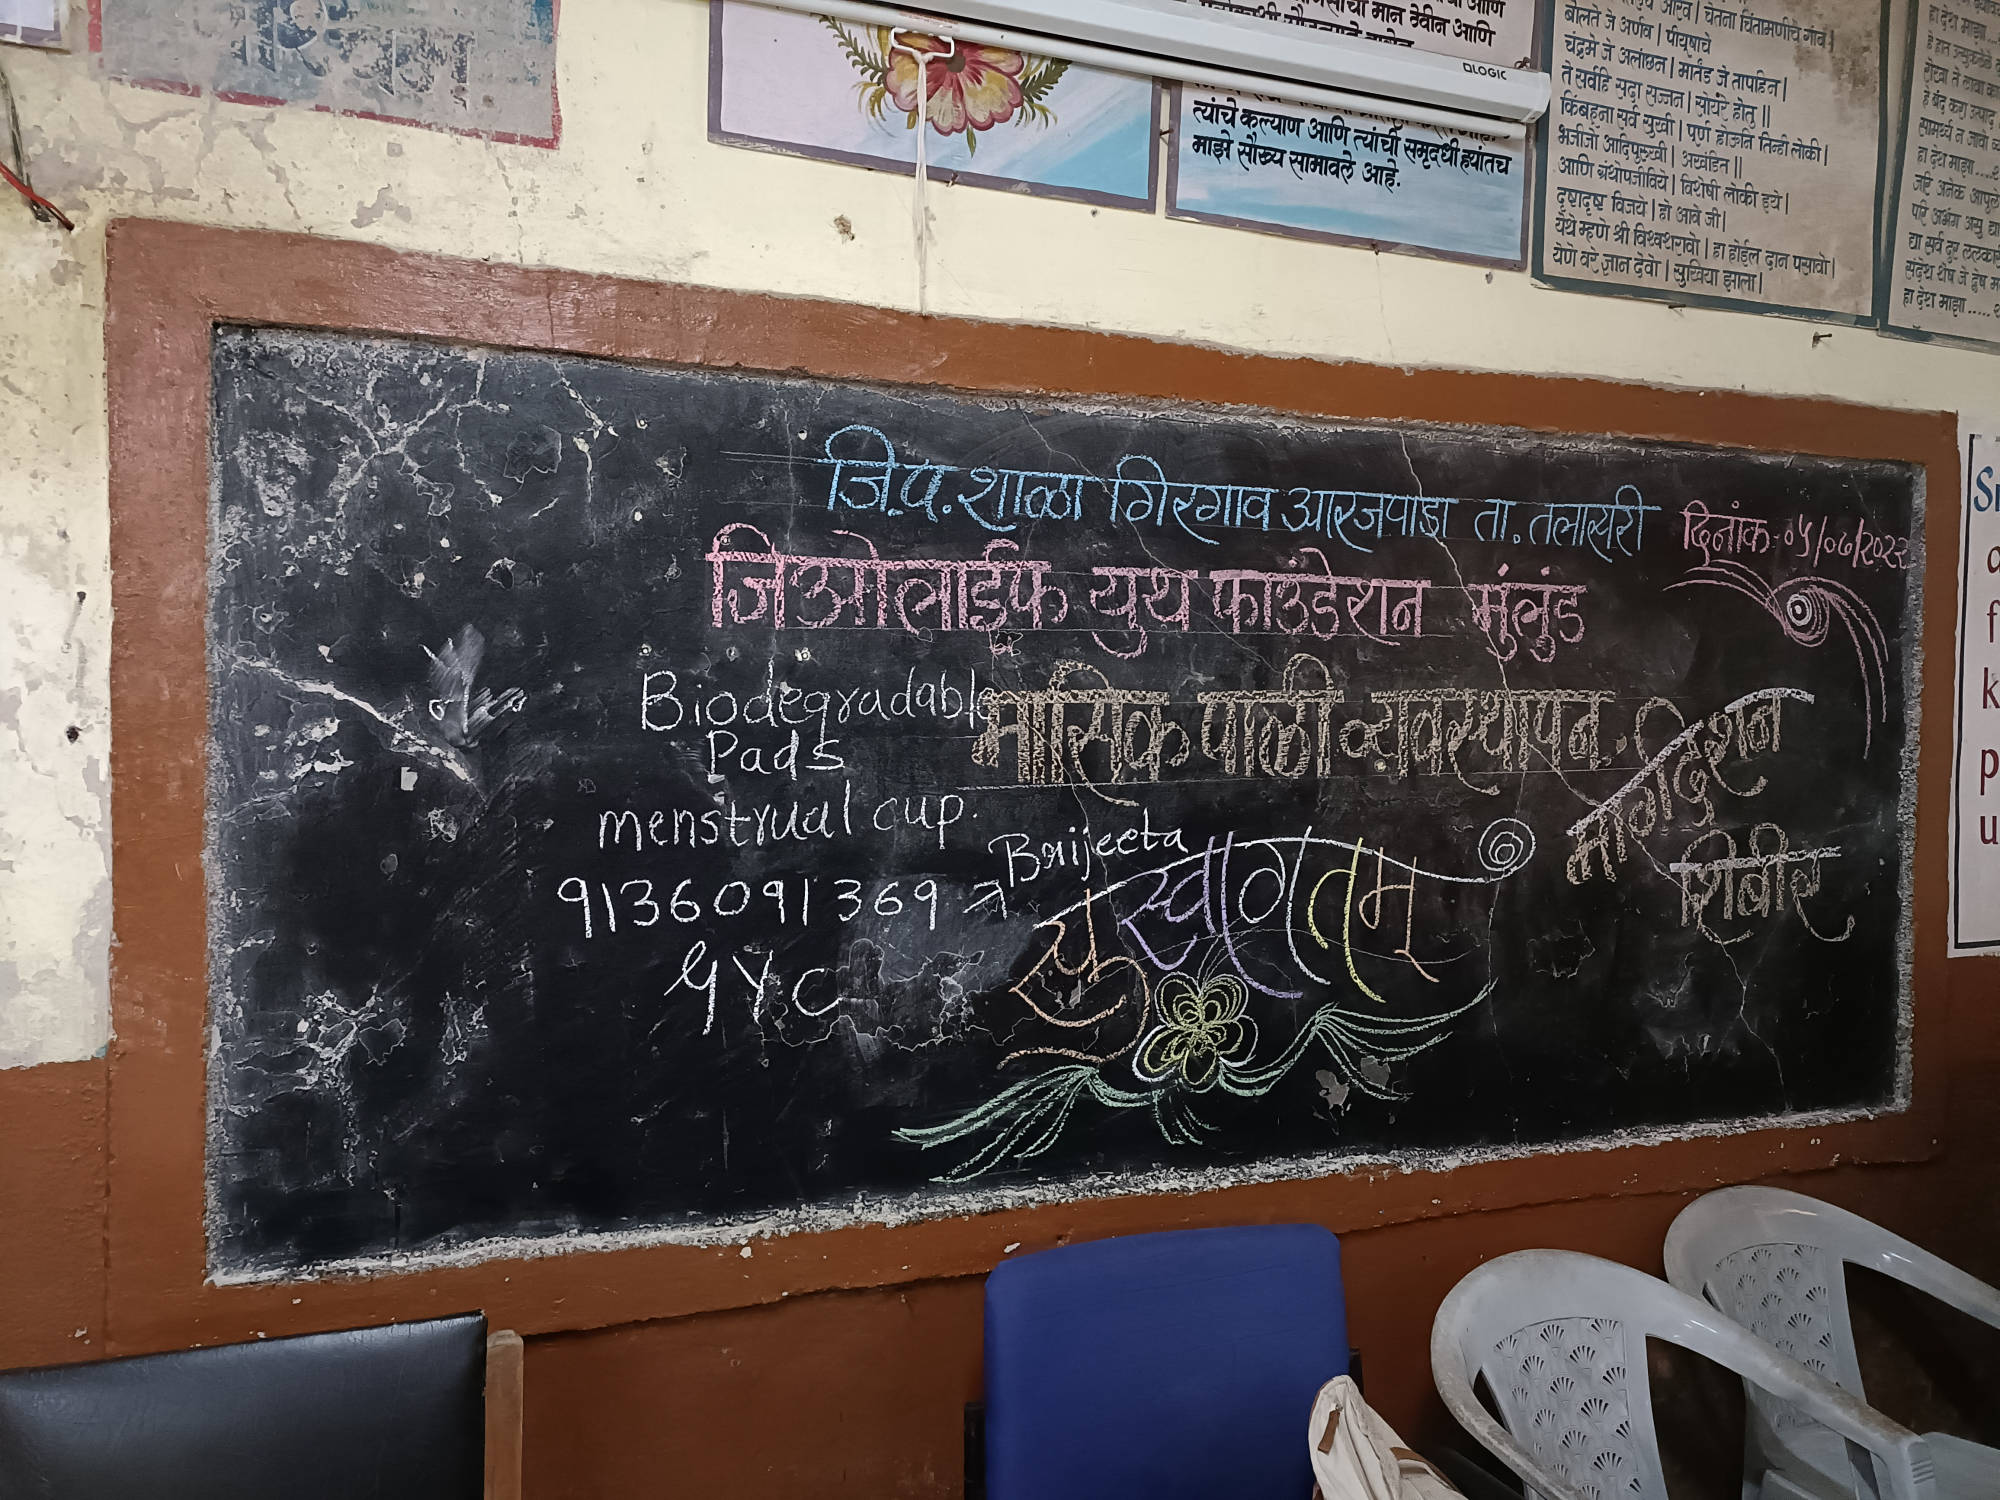 मान देवीन आणि
OLOGIC
त्यांचे कल्याण आणि त्यांची समृद्धी ह्यांतच
माझे सौख्य सामावले आहे.
चेतना चिंतामणीचे गांव |
बोलते जे अर्णव | पीयूषाचे
चंद्रमे जे अलांछन | मार्तंड जे तापहिन |
ते सर्वाहि सदा सज्जन | सोयरे होतु ||
किंबहुना सर्व सुखी | पूर्ण होऊनि तिन्ही लोकी |
भजीजो आदिपुरुखी | अखंडित ||
आणि ग्रंथोपजीविये | विशेषी लोकी इये |
दृष्टादृष्ट विजये | हो आवे जी |
येथ म्हणे श्री विश्वेशरावो | हा होईल दान पसावो |
येणे वरे ज्ञान देवो | सुखिया झाला |
हा देश माझा
सामर्थ्य न जावो
हा देश माझा.....२
जरि अनेक आपुले
परि अभंग असु द्या
हा देश माझा.....
जि.प. शाळा गिरगाव आरजपाडा ता. तलासरी
दिनांक-०५/०७/२०२२
जिओलाईफ युथ फाउंडेशन मुंलुंड
Biodegradable
Pads
मासिक पाळी व्यवस्थापन
मार्गदर्शन
शिबीर
menstrual cup.
9136091369 → Baijeeta
GYC
सुस्वागतम्